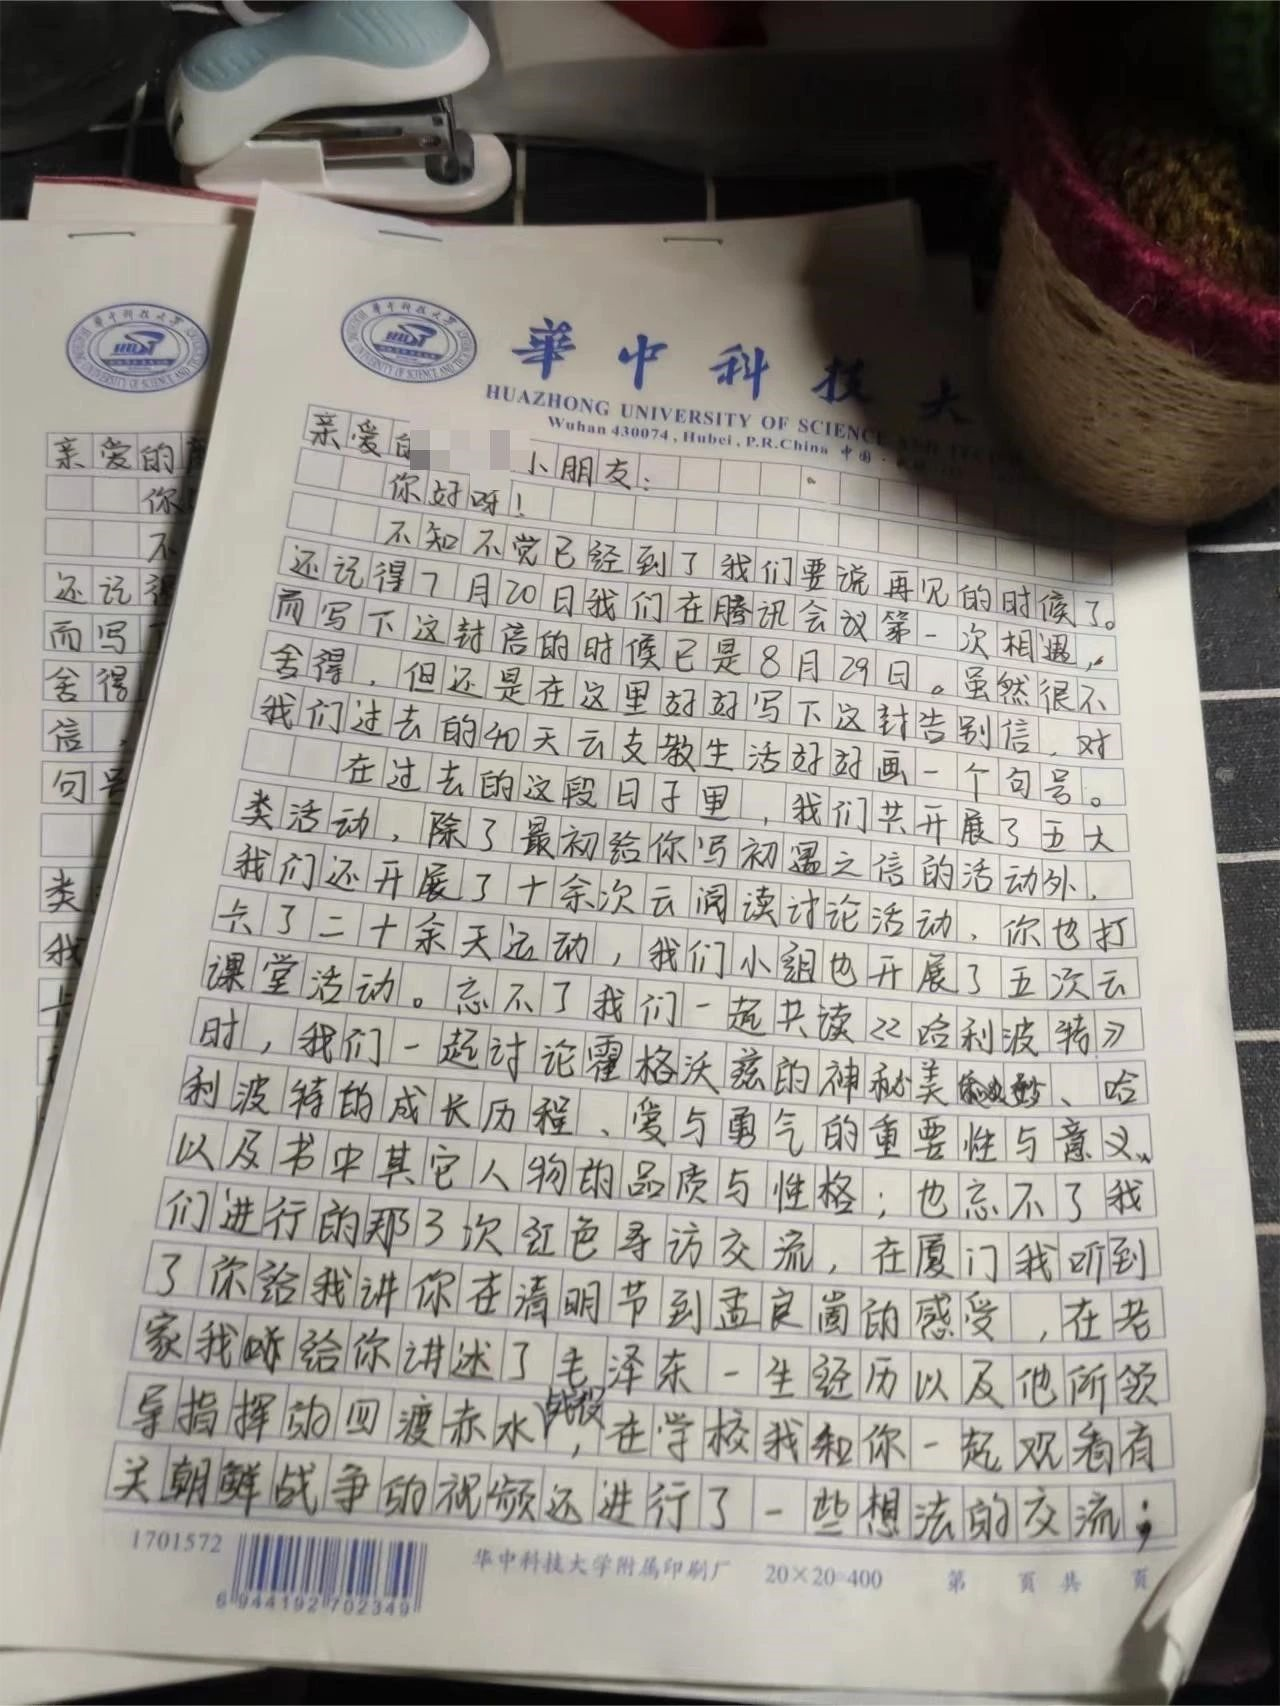 華中科技大
HUAZHONG UNIVERSITY OF SCIENCE AND TECH
Wuhan 430074, Hubei, P.R.China 中国
亲爱的 小朋友：
你好呀！
不知不觉已经到了我们要说再见的时候了。
还记得7月20日我们在腾讯会议第一次相遇，
而写下这封信的时候已是8月29日。虽然很不
舍得，但还是在这里好好写下这封告别信，对
我们过去的40天云支教生活好好画一个句号。
在过去的这段日子里，我们共开展了五大
类活动，除了最初给你写初遇之信的活动外，
我们还开展了十余次云阅读讨论活动，你也打
卡了二十余天运动，我们小组也开展了五次云
课堂活动。忘不了我们一起共读《哈利波特》
时，我们一起讨论霍格沃兹的神秘美妙、哈
利波特的成长历程、爱与勇气的重要性与意义、
以及书中其它人物的品质与性格；也忘不了我
们进行的那3次红色寻访交流，在厦门我听到
了你给我讲你在清明节到孟良崮的感受，在老
家我给你讲述了毛泽东一生经历以及他所领
导指挥的四渡赤水战役，在学校我和你一起观看有
关朝鲜战争的视频还进行了一些想法的交流；
1701572
6 944192 702349
华中科技大学附属印刷厂 20×20=400 第 页 共 页
亲爱的
你
不
还记得
而写下
舍得
信，
句号
类
我
卡